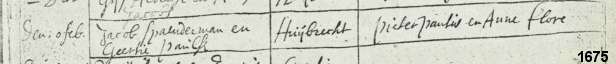 Den 10 feb. Jacob paenderman en Huijbrecht pieter paulis en Anne flore
Geertie paulis
1675